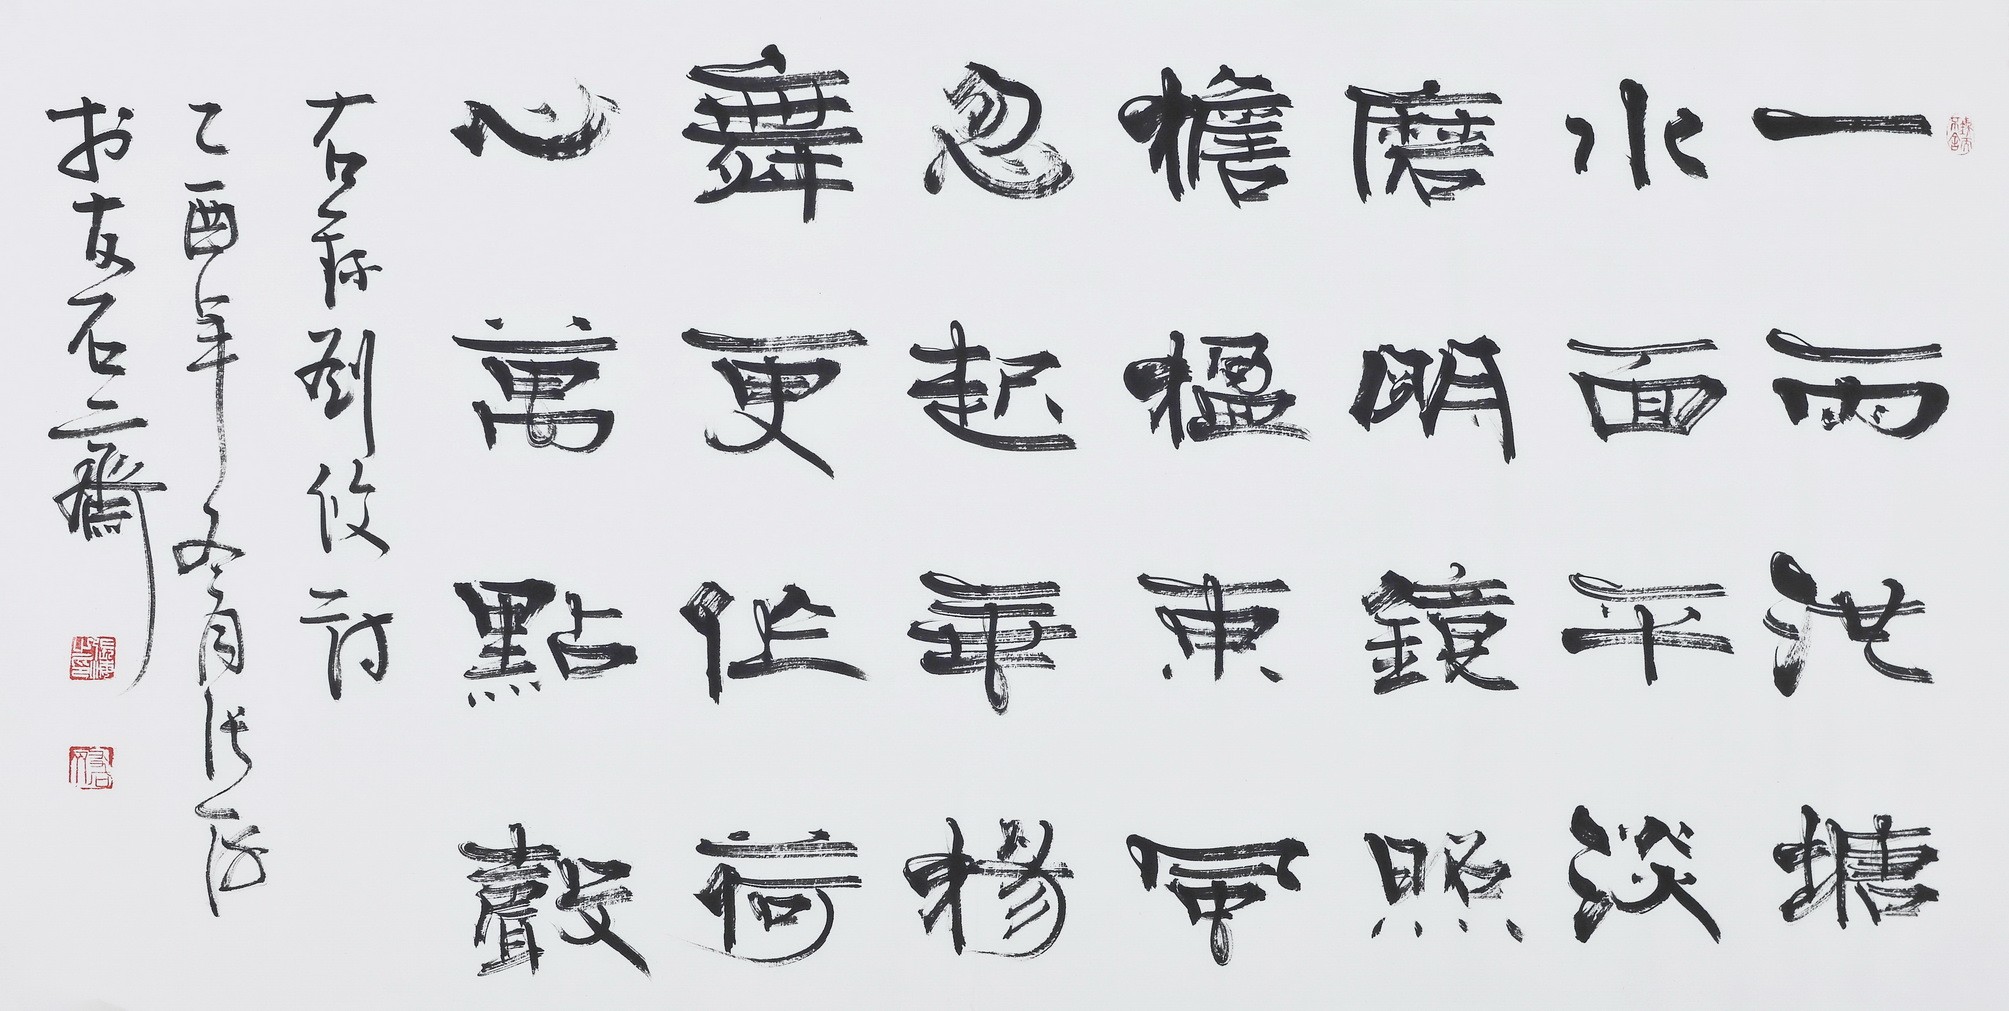 一雨池塘
水面平淡
磨明鏡照
檐楹東風
忽起垂楊
舞更作荷
心萬點聲
右錄劉攽詩
乙酉年冬月張
於友石齋